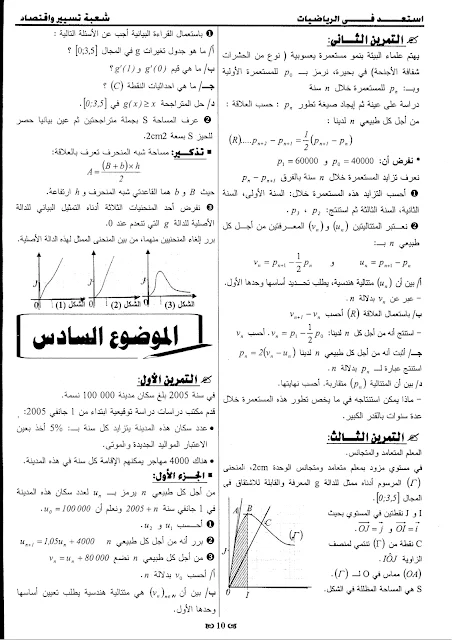 استعد فى الرياضيات
شعبة تسيير واقتصاد
التمرين الثانى:
يهتم علماء البيئة بنمو مستعمرة يعسوبية ( نوع من الحشرات
شفافة الأجنحة) في بحيرة، نرمز بـ p₀ للمستعمرة الأولية
وبـ: pₙ للمستعمرة خلال n سنة
دراسة على عينة تم إيجاد صيغة تطور pₙ : حسب العلاقة :
من أجل كل طبيعي n لدينا :
(R)....pₙ₊₂ − pₙ₊₁ = 1/2 (pₙ₊₁ − pₙ)
• نفرض أن: p₀ = 40000 و p₁ = 60000
نعرف تزايد المستعمرة خلال n سنة بالفرق pₙ − pₙ₊₁
❶ أحسب التزايد هذه المستعمرة خلال: السنة الأولى، السنة
الثانية، السنة الثالثة ثم استنتج: p₂ ، p₃ .
❷ نعتبر المتتاليتين (uₙ) و (vₙ) المعرفتين من أجل كل
طبيعي n بـ:
uₙ = pₙ₊₁ − pₙ و vₙ = pₙ₊₁ − 1/2 pₙ
أ/ بين أن (uₙ) متتالية هندسية، يطلب تحديد أساسها وحدها الأول.
- عبر عن uₙ بدلالة n.
ب/ باستعمال العلاقة (R) أحسب vₙ₊₁ − vₙ
- استنتج أنه من أجل كل n لدينا: vₙ = p₁ − 1/2 p₀. أحسب vₙ
جـ/ أثبت أنه من أجل كل طبيعي n لدينا pₙ = 2(vₙ − uₙ)
استنتج عبارة لـ pₙ بدلالة n.
د/ بين أن المتتالية (pₙ) متقاربة. أحسب نهايتها.
- ماذا يمكن استنتاجه في ما يخص تطور هذه المستعمرة خلال
عدة سنوات بالقدر الكبير.
التمرين الثالث:
المعلم المتعامد والمتجانس.
في مستوي مزود بمعلم متعامد ومتجانس الوحدة 2cm، المنحنى
(Γ) المرسوم أداه ممثل للدالة g المعرفة والقابلة للاشتقاق في
المجال [0;3,5].
I و J نقطتين في المستوي بحيث
OI = i و OJ = j
C نقطة من (Γ) تنتمي لمنصف
الزاوية IOJ.
(OA) مماس في O لـ (Γ).
S هي المساحة المظللة في الشكل.
A
B
C
(Γ)
J
O
I
❶ باستعمال القراءة البيانية أجب عن الأسئلة التالية :
أ/ ما هو جدول تغيرات g في المجال [0;3,5] ؟
ب/ ما هي قيم g'(0) و g'(1) ؟
جـ/ ما هي احداثيات النقطة (C) ؟
د/ حل المتراجحة g(x) ≥ x في [0;3,5].
❷ عرف المساحة S بجملة متراجحتين ثم عين بيانيا حصر
للحيز S بسعة 2cm2.
▪ تذكير: مساحة شبه المنحرف تعرف بالعلاقة:
A = (B + b) × h / 2
حيث B و b هما القاعدتي شبه المنحرف و h ارتفاعة.
❸ نفرض أحد المنحنيات الثلاثة أدناه التمثيل البياني للدالة
الأصلية للدالة g التي تنعدم عند 0.
برر إلغاء المنحنيين منهما، من بين المنحنى الممثل لهذه الدالة الأصلية.
الشكل (1)
الشكل (2)
الشكل (3)
الموضوع السادس
التمرين الأول:
في سنة 2005 بلغ سكان مدينة 100 000 نسمة.
قدم مكتب دراسات دراسة توقيعية ابتداء من 1 جانفي 2005:
• عدد سكان هذه المدينة يتزايد كل سنة بـ: 5% أخذ بعين
الاعتبار المواليد الجديدة والموتى.
• هناك 4000 مهاجر يمكنهم الإقامة كل سنة في هذه المدينة.
▪ الجزء الأول:
من أجل كل طبيعي n يرمز بـ uₙ لعدد سكان هذه المدينة
في 1 جانفي سنة 2005+n ونعلم أن u₀ = 100 000.
❶ أحسب u₁ و u₂.
❷ برر أنه من أجل كل n طبيعي uₙ₊₁ = 1,05uₙ + 4000
❸ من أجل كل n طبيعي نضع vₙ = uₙ + 80 000
أ/ أحسب vₙ بدلالة n.
ب/ بين أن (vₙ)n∈N هي متتالية هندسية يطلب تعيين أساسها
وحدها الأول.
10